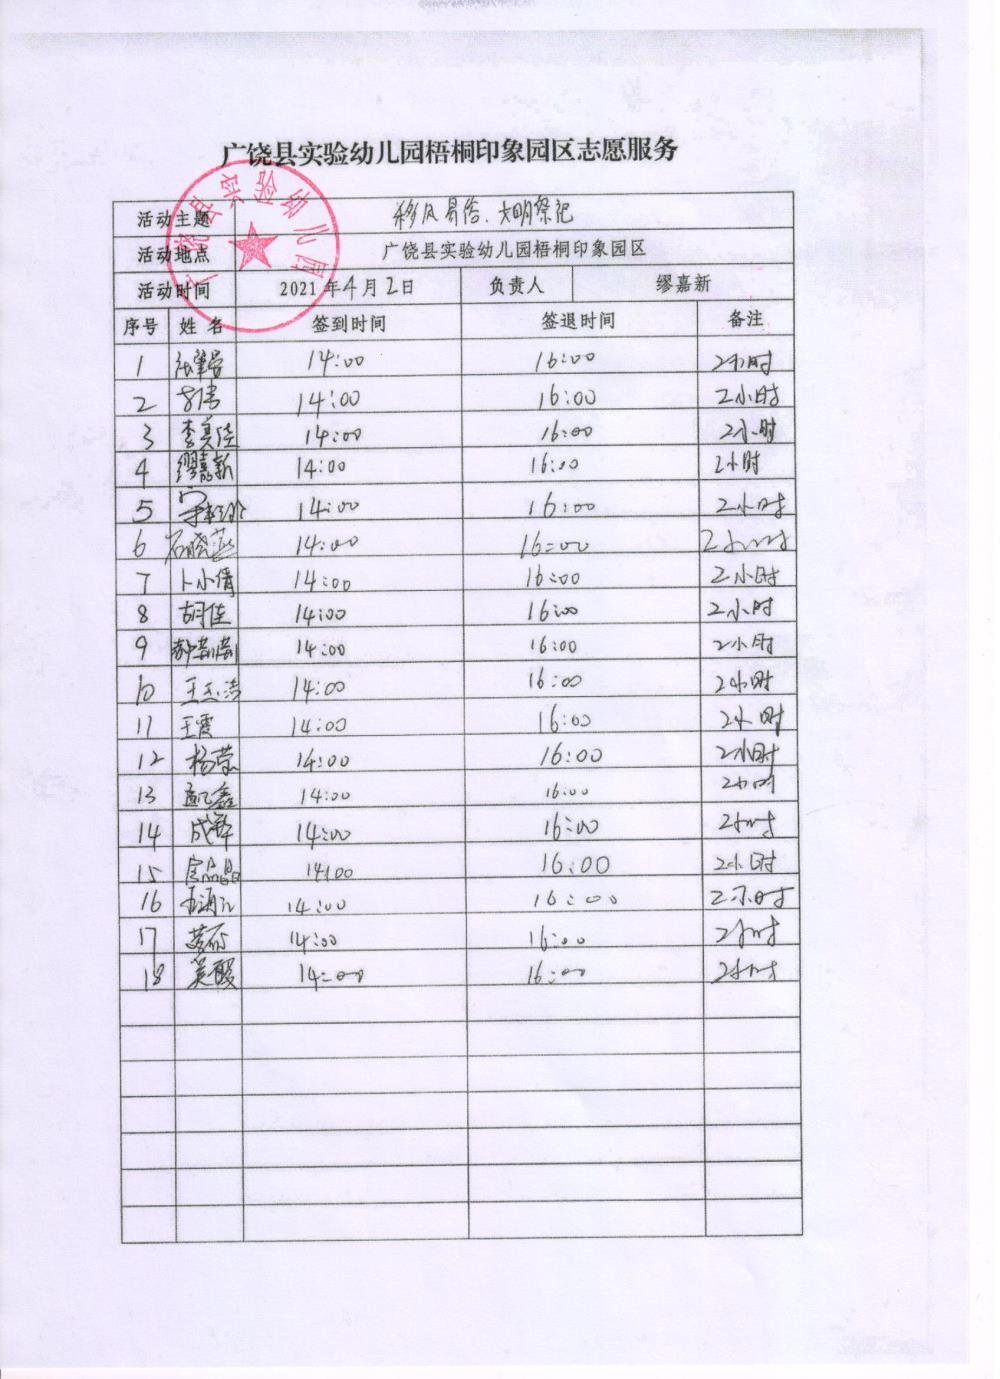 广饶县实验幼儿园梧桐印象园区志愿服务
广饶县实验幼儿园
活动主题 移风易俗、文明祭祀
活动地点 广饶县实验幼儿园梧桐印象园区
活动时间 2021年4月2日 负责人 缪嘉新
序号 姓名 签到时间 签退时间 备注
1 14:00 16:00 2小时
2 14:00 16:00 2小时
3 李美佳 14:00 16:00 2小时
4 缪嘉新 14:00 16:00 2小时
5 14:00 16:00 2小时
6 石晓燕 14:00 16:00 2小时
7 卜小倩 14:00 16:00 2小时
8 胡佳 14:00 16:00 2小时
9 14:00 16:00 2小时
10 王玉洁 14:00 16:00 2小时
11 王霞 14:00 16:00 2小时
12 杨荣 14:00 16:00 2小时
13 14:00 16:00 2小时
14 14:00 16:00 2小时
15 14:00 16:00 2小时
16 14:00 16:00 2小时
17 14:00 16:00 2小时
18 14:00 16:00 2小时